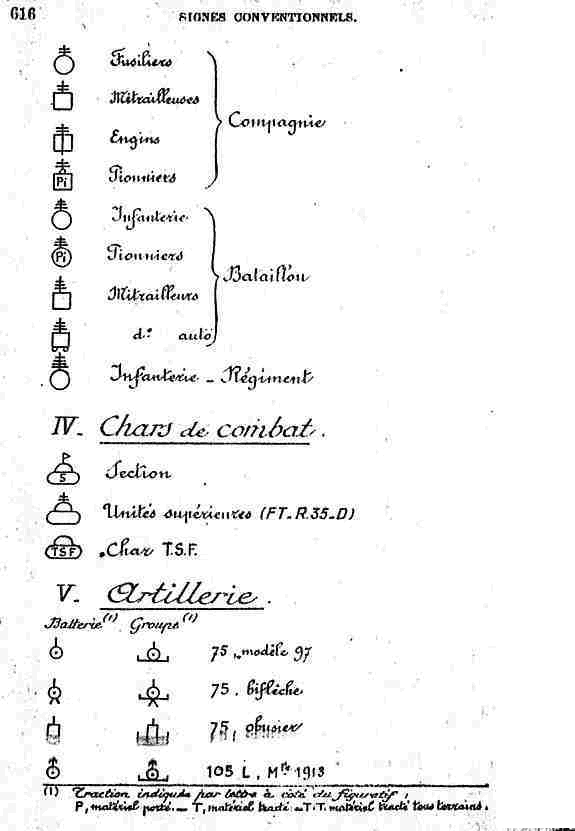 616
SIGNES CONVENTIONNELS.
Fusiliers
Mitrailleuses
Engins
Pi Pionniers
Compagnie
Infanterie
Pi Pionniers
Mitrailleurs
d.° auto
Bataillon
Infanterie - Régiment
IV_ Chars de combat.
S Section
Unités supérieures (FT_R.35_D)
TSF Char T.S.F.
V. Artillerie.
Batterie (1) Groupe (1)
75 modèle 97
75. biflèche
75, obusier
105 L, Mle 1913
(1) Traction indiquée par lettre à côté du figuratif,
P, matériel porté. _ T, matériel tracté _ T.T. matériel tracté tous terrains.